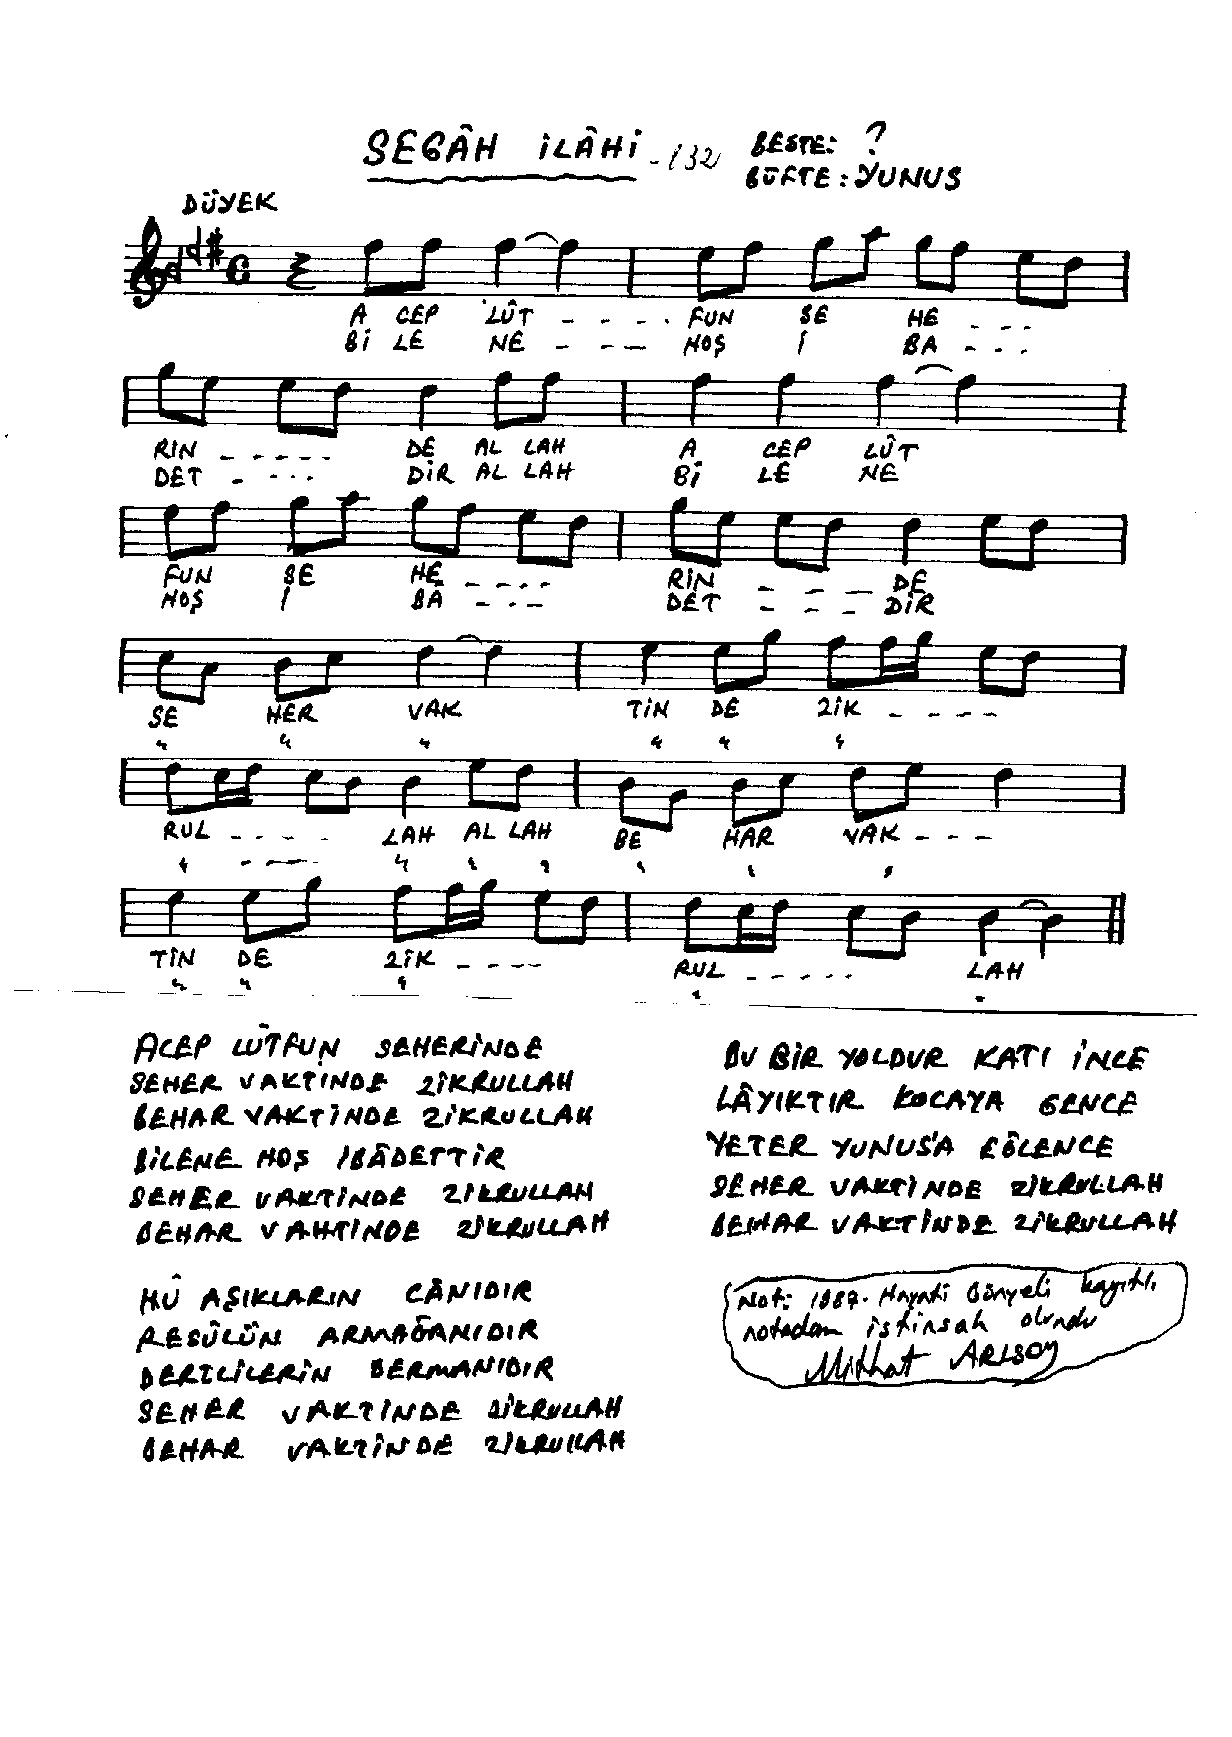 SEGÂH İLÂHİ -132 BESTE: ?
GÜFTE: YUNUS
DÜYEK
A CEP LÛT - - - - FUN SE HE - - -
Bİ LE NE - - - HOŞ İ BA - - -
RİN - - - - - DE AL LAH A CEP LÛT
DET - - - - DİR AL LAH Bİ LE NE
FUN SE HE - - - - RİN - - - DE
HOŞ İ BA - - - DET - - - DİR
SE HER VAK TİN DE ZİK - - - -
" " " " " "
RUL - - - - LAH AL LAH BE HAR VAK - - -
TİN DE ZİK - - - - RUL - - - - - LAH
ACEP LÛTFUN SEHERİNDE
SEHER VAKTİNDE ZİKRULLAH
BEHAR VAKTİNDE ZİKRULLAH
BİLENE HOŞ İBÂDETTİR
SEHER VAKTİNDE ZİKRULLAH
BEHAR VAHTİNDE ZİKRULLAH
HÛ AŞIKLARIN CÂNIDIR
RESÛLÜN ARMAĞANIDIR
DERTLİLERİN DERMANIDIR
SEHER VAKTİNDE ZİKRULLAH
BEHAR VAKTİNDE ZİKRULLAH
BU BİR YOLDUR KATI İNCE
LÂYIKTIR KOCAYA GENCE
YETER YUNUS'A EĞLENCE
SEHER VAKTİNDE ZİKRULLAH
BEHAR VAKTİNDE ZİKRULLAH
Not: 1987. Hayati Günyeli kayıtlı
notadan istinsah olundu
Mithat ARISOY